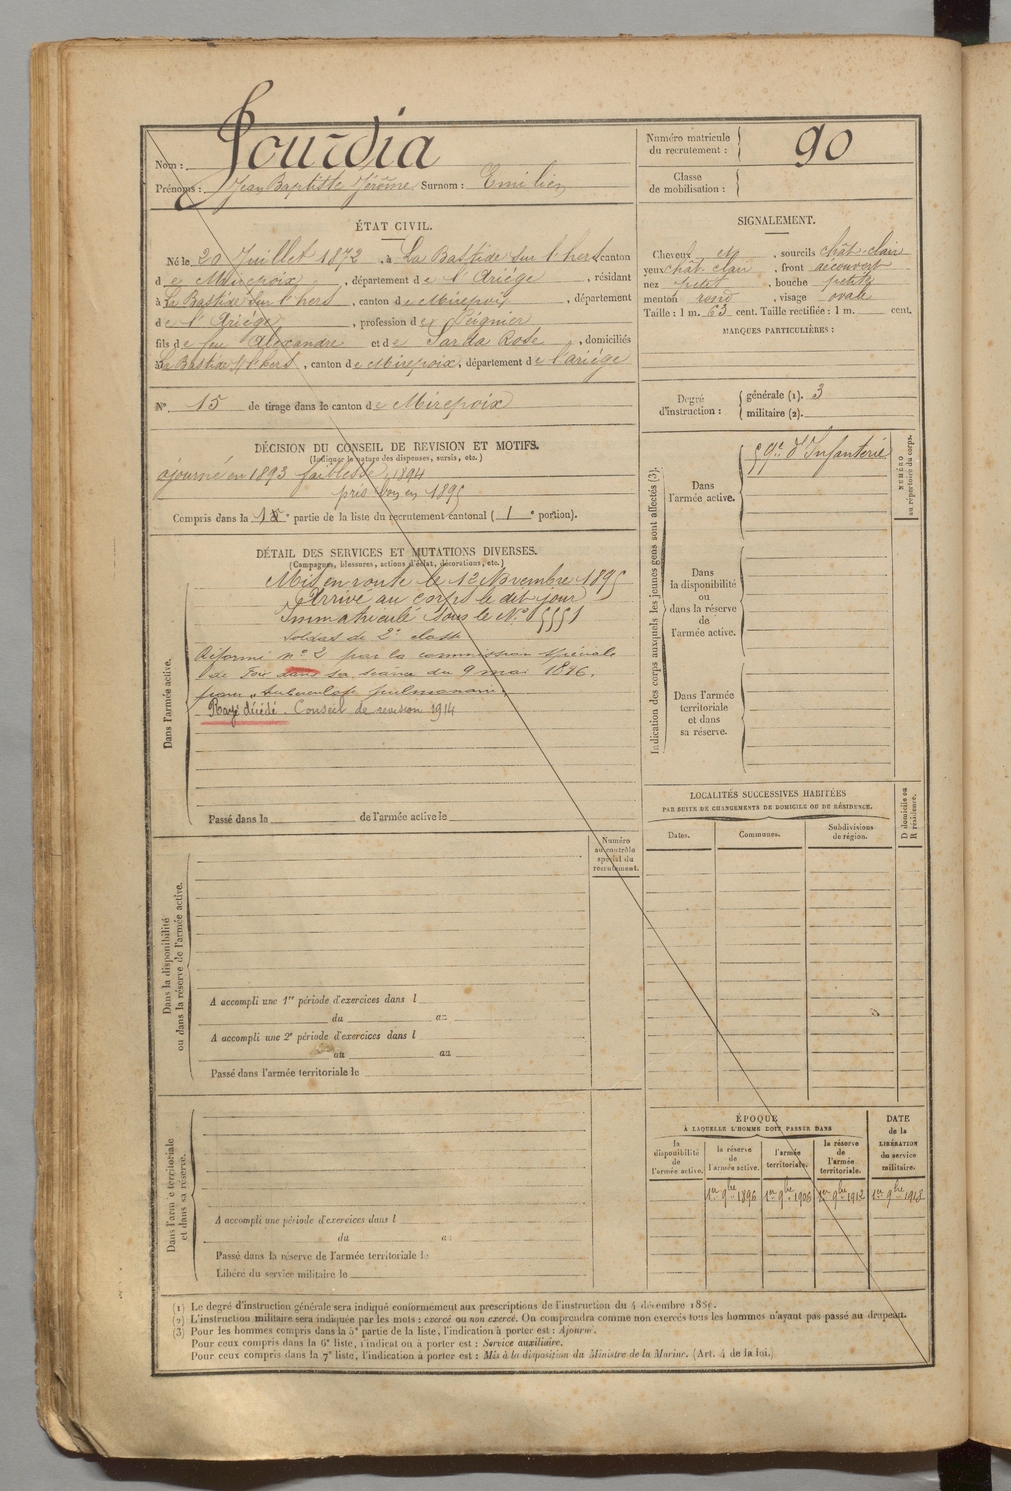 Nom : Jourdia
Prénoms : Jean Baptiste Jérôme Surnom : Emilien
Numéro matricule du recrutement : 90
Classe de mobilisation :
ÉTAT CIVIL.
Né le 20 Juillet 1872, à La Bastide sur l'hers canton
de Mirepoix, département de l'Ariége, résidant
à La Bastide sur l'hers, canton de Mirepoix, département
de l'Ariége, profession de Peignier
fils de feu Alexandre et de Sarda Rose, domiciliés
à La Bastide s/ l'hers, canton de Mirepoix, département de l'ariége
N° 15 de tirage dans le canton de Mirepoix
SIGNALEMENT.
Cheveux et, sourcils chât. clair
yeux chât. clair, front découvert
nez petit, bouche petite
menton rond, visage ovale
Taille : 1 m. 63 cent. Taille rectifiée : 1 m. cent.
MARQUES PARTICULIÈRES :
Degré d'instruction : générale (1). 3
militaire (2).
DÉCISION DU CONSEIL DE REVISION ET MOTIFS.
(Indiquer la nature des dispenses, sursis, etc.)
ajourné en 1893 faiblesse, 1894
pris bon en 1895
Compris dans la 1e partie de la liste du recrutement cantonal (1e portion).
DÉTAIL DES SERVICES ET MUTATIONS DIVERSES.
(Campagnes, blessures, actions d'éclat, décorations, etc.)
Dans l'armée active.
Mis en route le 12 Novembre 1895
Arrivé au corps le dit jour
Immatriculé sous le N° 5551
Soldat de 2e classe
Réformé n° 2 par la commission spéciale
de Foix dans sa séance du 9 mai 1896.
pour "tuberculose pulmonaire"
Rayé décédé. Conseil de revision 1914
Passé dans la de l'armée active le
Indication des corps auxquels les jeunes gens sont affectés (3).
Dans l'armée active.
59e d'Infanterie
NUMÉRO au répertoire du corps.
Dans la disponibilité ou dans la réserve de l'armée active.
Dans l'armée territoriale et dans sa réserve.
LOCALITÉS SUCCESSIVES HABITÉES
PAR SUITE DE CHANGEMENTS DE DOMICILE OU DE RÉSIDENCE.
Dates.
Communes.
Subdivisions de région.
D domicile ou R résidence.
Numéro au contrôle spécial du recrutement.
Dans la disponibilité ou dans la réserve de l'armée active.
A accompli une 1re période d'exercices dans l
du au
A accompli une 2e période d'exercices dans l
du au
Passé dans l'armée territoriale le
Dans l'armée territoriale et dans sa réserve.
A accompli une période d'exercices dans l
du au
Passé dans la réserve de l'armée territoriale le
Libéré du service militaire le
ÉPOQUE
À LAQUELLE L'HOMME DOIT PASSER DANS
la disponibilité de l'armée active.
la réserve de l'armée active.
l'armée territoriale.
la réserve de l'armée territoriale.
DATE de la LIBÉRATION du service militaire.
1er 9bre 1896
1er 9bre 1906
1er 9bre 1912
1er 9bre 1918
(1) Le degré d'instruction générale sera indiqué conformément aux prescriptions de l'instruction du 4 décembre 1889.
(2) L'instruction militaire sera indiquée par les mots : exercé ou non exercé. On comprendra comme non exercés tous les hommes n'ayant pas passé au drapeau.
(3) Pour les hommes compris dans la 5e partie de la liste, l'indication à porter est : Ajourné.
Pour ceux compris dans la 6e liste, l'indication à porter est : Service auxiliaire.
Pour ceux compris dans la 7e liste, l'indication à porter est : Mis à la disposition du Ministre de la Marine. (Art. 4 de la loi.)